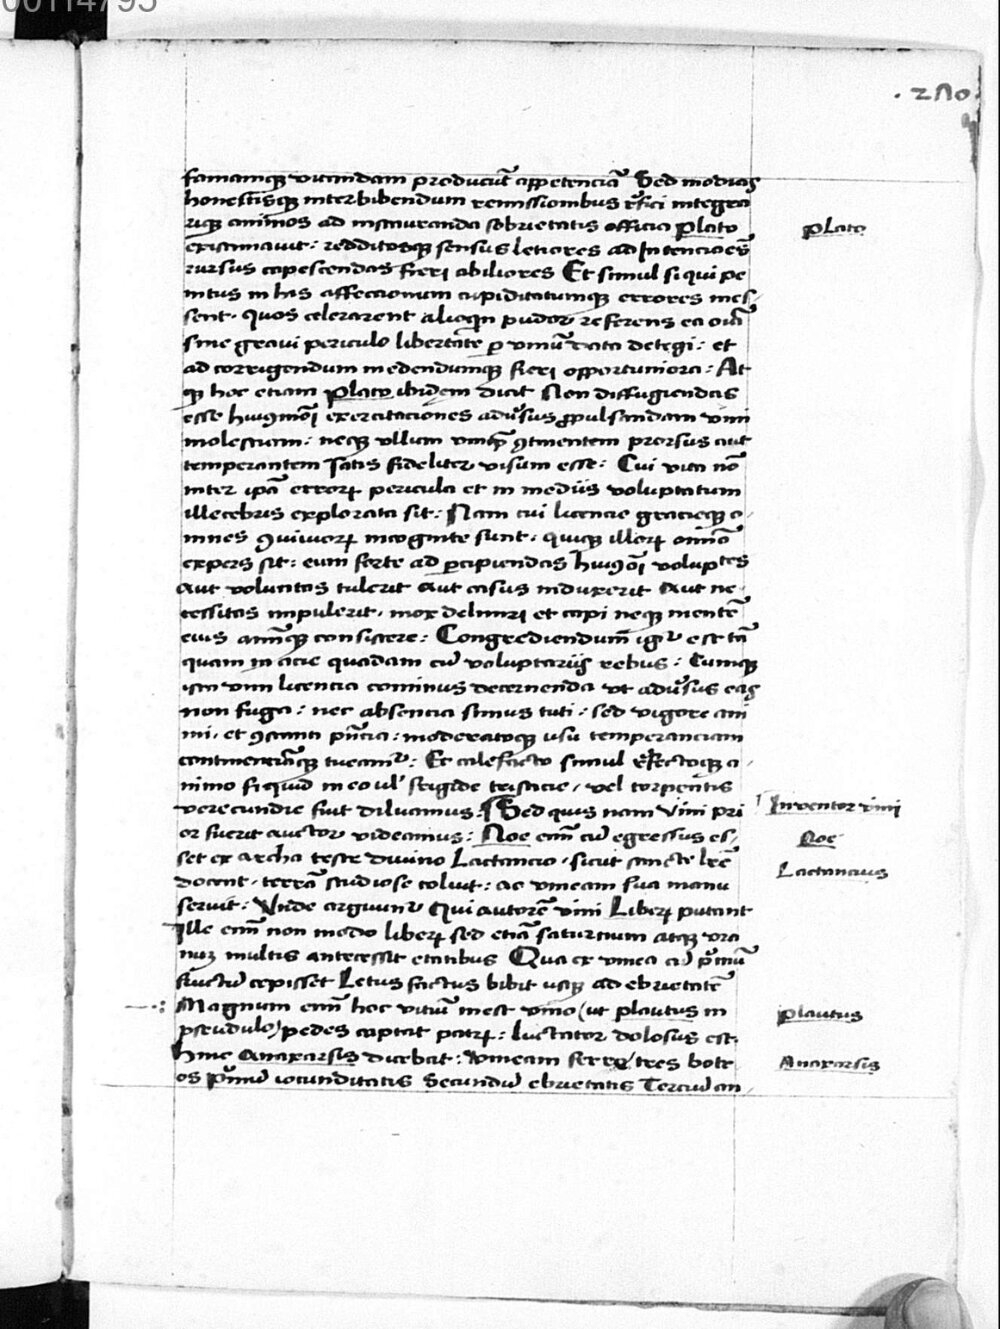 00114795
. 2Λ0 .
famamq̢ vitandam producu̅t appetencia̅ Sed modicis
honestisq̢ inter bibendum remissionibus refici integra
riq̢ animos ad instauranda sobrietatis officia Plato
existimauit : redditosq̢ sensus letiores ad Intencio̅es
rursus capescendas fieri abiliores Et simul si qui pe
nitus in his affectionum cupiditatumq̢ errores ines-
sent . quos celerarent alioqin pudor referens ea oi̅a
sine graui periculo libertate p̲ vinu̅ data detegi : et
ad corrigendum medendumq̢ fieri opportuniora : At
q̢ hoc etiam Plato ibidem dicit Non diffugiendas
esse huiꝰmo̅i exercitaciones aduˀsus propulsandam vini
molestiam : neq̢ vllum vmq̲ ꝯtinentem prorsus aut
temperantem satis fideliter visum esse : Cui vita no̅
inter ipa̅ erroꝝ pericula et in mediis voluptatum
illecebris explorata sit : Nam cui licencie gracieq̢ o-
mnes ꝯuiuioꝝ incognite sunt . quiq̢ illoꝝ omi̅o
expers sit : eum forte ad p̲cipiendas huiꝰmo̅i voluptes
Aut voluntas tulerit Aut casus induxerit Aut ne-
cessitas impulerit . mox deliniri et capi neq̢ mente̅
eius animu̅q̢ consistere : Congrediendum̅ igr̃ est ta̅
quam in acie quadam cu̅ voluptariis rebus : Cumq̢
ista vini licencia cominus decernenda vt aduˀsus eas
non fuga : nec absencia simus tuti : sed vigore ani
mi . et ꝯstanti pn̅cia : moderatoq̢ usu temperanciam
continencia̅q̢ tueamˀ : Et calefacto simul refectoq̢ a-
nimo si quid in eo ul̓ frigide tristicie , vel torpentis
verecundie fuit diluamus . Sed quis nam Vini pri Inventor vini
or fuerit auctor videamus : Noe eni̅ cu̅ egressus es- Noe
set ex archa teste diuino Lactancio . sicut sancte lr̅e Lactancius
docent . terra̅ studiose coluit : ac vineam sua manu
seruit : Vnde arguuntˀ Qui autore̅ vini Liberꝝ putant
Ille eni̅ non modo liberꝝ sed etia̅ saturnum atq̢ vra
nuꝫ multis antecessit etatibus Qua ex vinea cu̅ pˀmu̅
fructu̅ cepisset Letus factus bibit usq̢ ad ebrietate̅
Magnum eni̅ hoc vitiu̅ inest vino (ut plautus in Plautus
pseudulo) pedes captat patꝝ : luctator dolosus est .
hinc Anaxarsis dicebat : vineam ferre tres botr Anaxarsis
os pˀmu̅ iocunditatis Secundu̅ ebrietatis Terciu̅ an
Plato